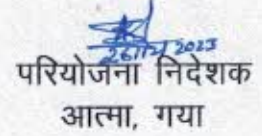 26/12/2023
परियोजना निदेशक
आत्मा, गया